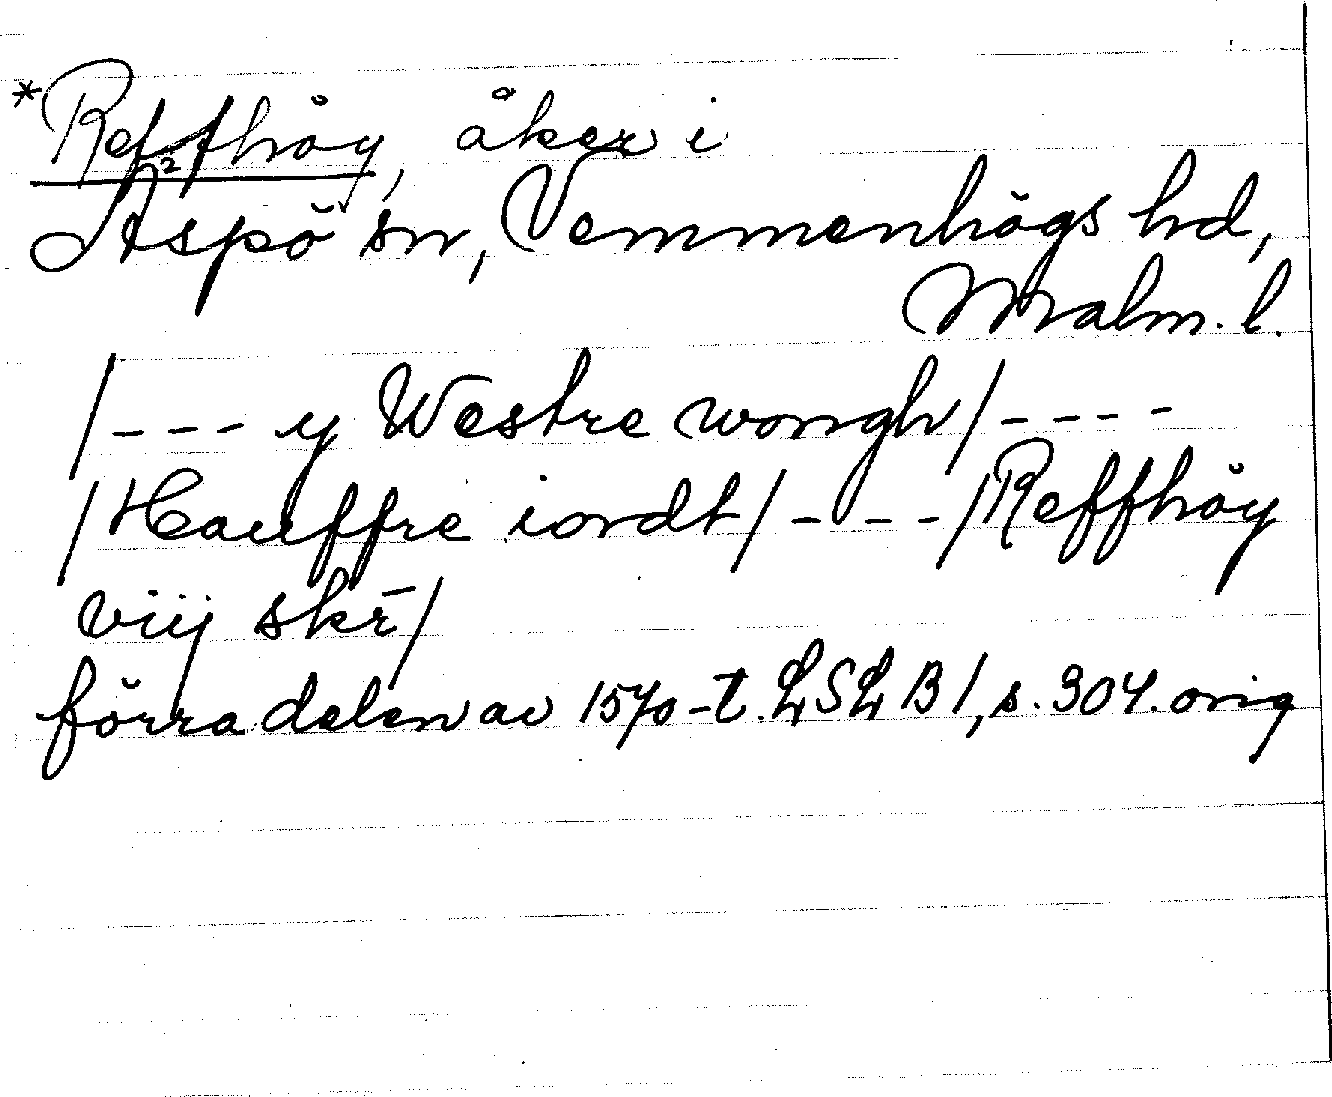 *Reffhåy, åker i
Äspö sn, Vemmenhögs hd,
Malm. l.
/--- y Westre wongh/----
/Hauffre iordt/----/Reffhåy
viij skr̄/
förra delen av 1570-t. LSLB1, s. 304. orig